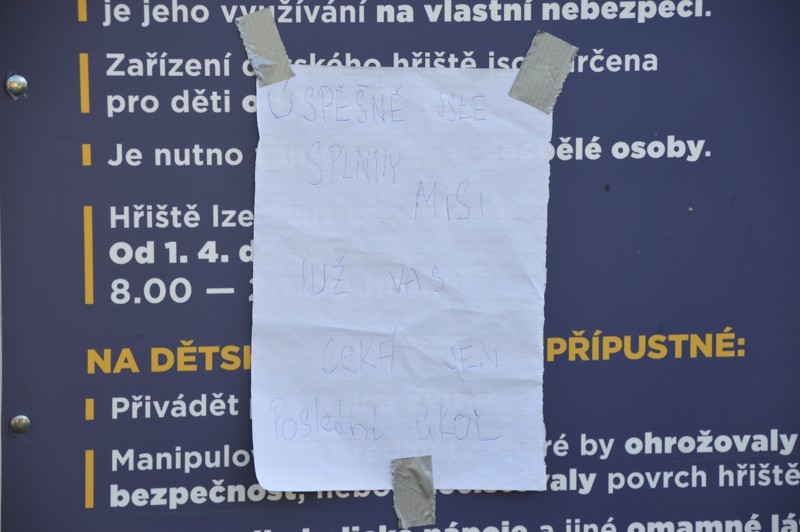 je jeho využívání na vlastní nebezpečí.
Zařízení dětského hřiště jsou určena
pro děti o
Je nutno
pělé osoby.
Hřiště lze
Od 1. 4. d
8.00 —
NA DĚTSK
PŘÍPUSTNÉ:
Přivádět
Manipulov
ré by ohrožovaly
bezpečnost, nebo
valy povrch hřiště
nápoje a jiné omamné lá
ÚSPĚŠNĚ JSTE
SPLNILY
MISI
UŽ VÁS
ČEKÁ JEN
Poslední úkol